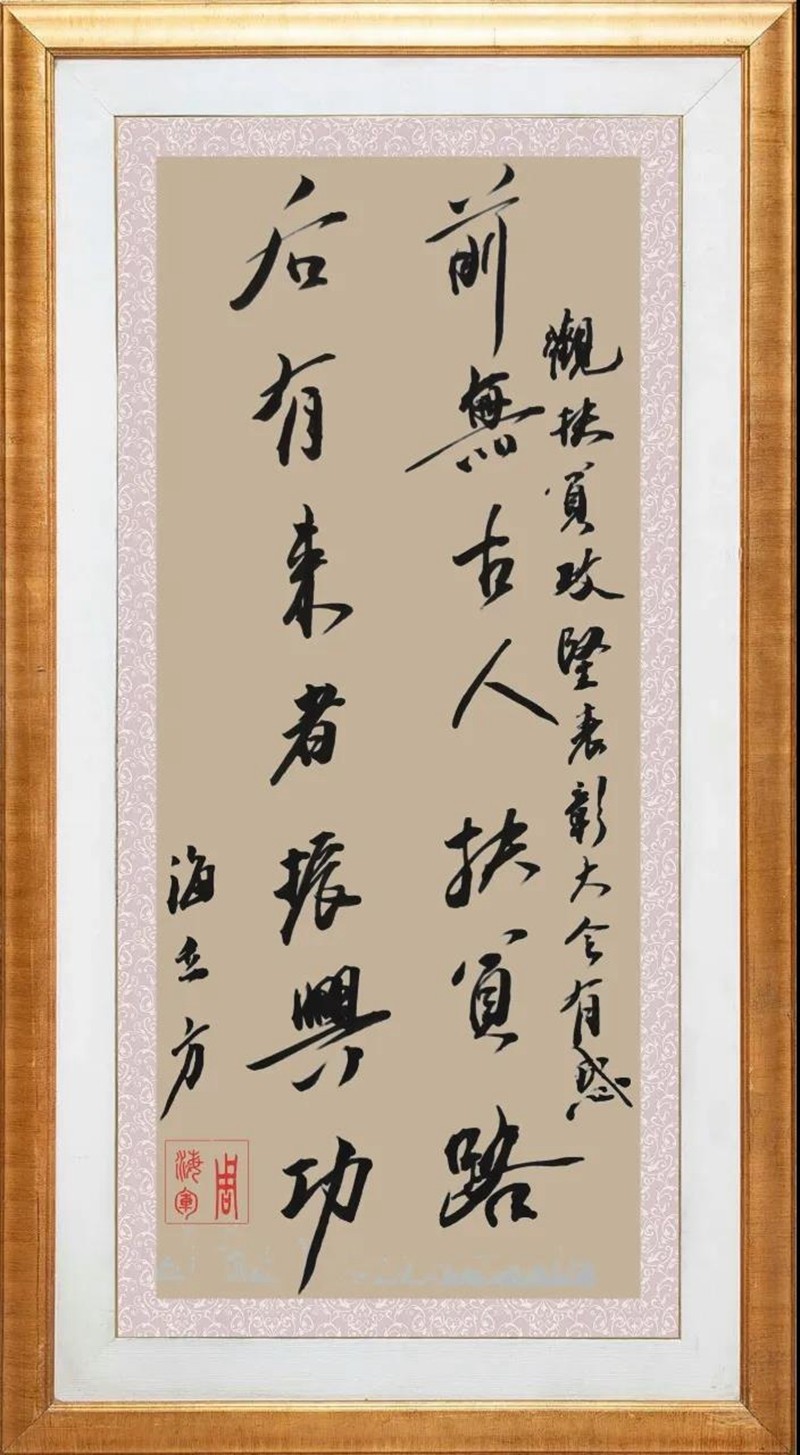 觀扶貧攻堅表彰大会有感
前無古人扶貧路
后有来者振興功
海立方
周海軍